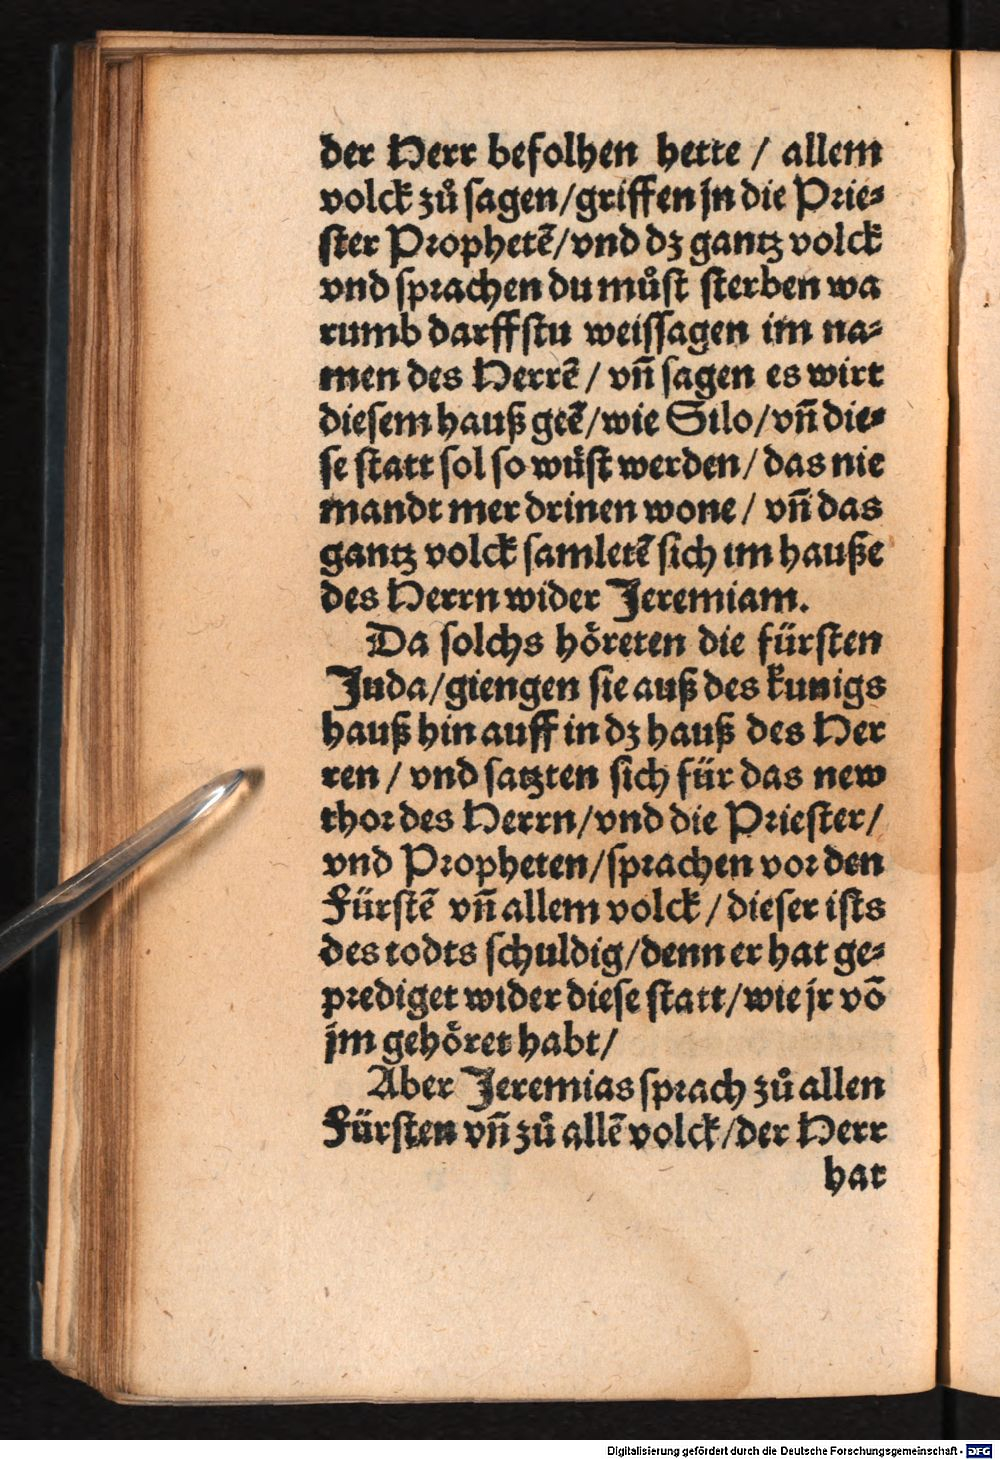 der Herr befolhen hette / allem
volck zů sagen/griffen jn die Prie⸗
ster Prophetẽ/vnd dz gantz volck
vnd sprachen du můst sterben wa
rumb darffstu weissagen im na⸗
men des Herrẽ / vñ sagen es wirt
diesem hauß geẽ/wie Silo/vñ die⸗
se statt sol so wůst werden/ das nie
mandt mer drinen wone / vñ das
gantz volck samletẽ sich im hauße
des Herrn wider Jeremiam.
Da solchs hoͤreten die fürsten
Juda/giengen sie auß des kunigs
hauß hin auff in dz hauß des Her
ren / vnd satzten sich für das new
thor des Herrn/vnd die Priester/
vnd Propheten/sprachen vor den
Fürstẽ vñ allem volck / dieser ists
des todts schuldig/denn er hat ge⸗
prediget wider diese statt/wie jr võ
jm gehoͤret habt/
Aber Jeremias sprach zů allen
Fürsten vñ zů allẽ volck/der Herr
hat
Digitalisierung gefördert durch die Deutsche Forschungsgemeinschaft - DFG